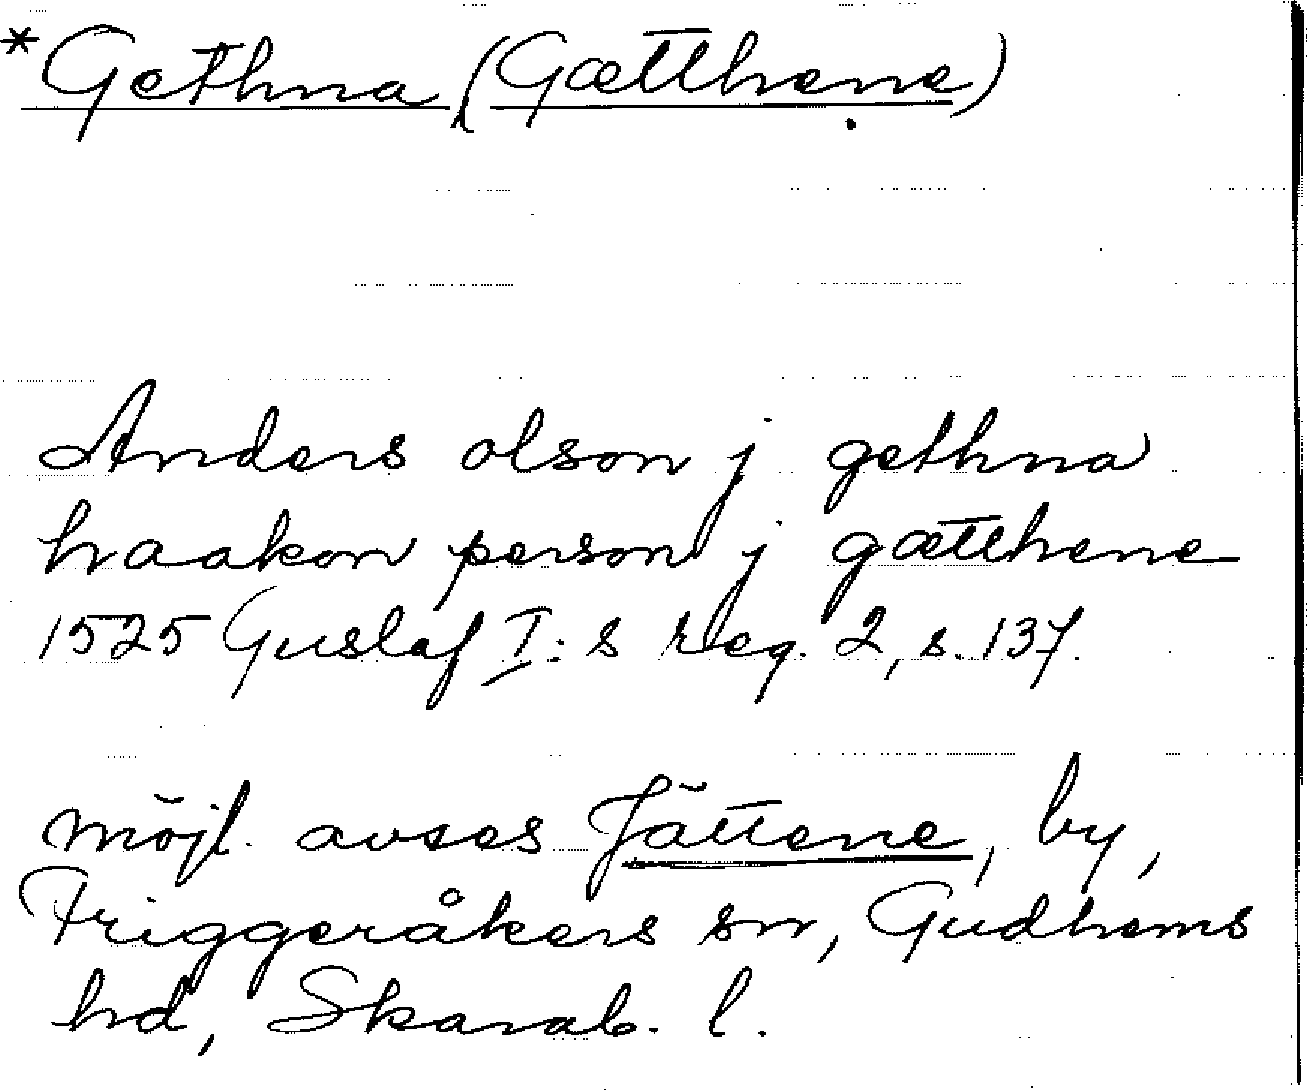 *Gethna (Gætthene)
Anders olson j gethna
haakon person j gætthene
1525 Gustaf I:s reg. 2, s. 137.
möjl. avses Jättene, by,
Friggeråkers sn, Gudhems
hd, Skarab. l.